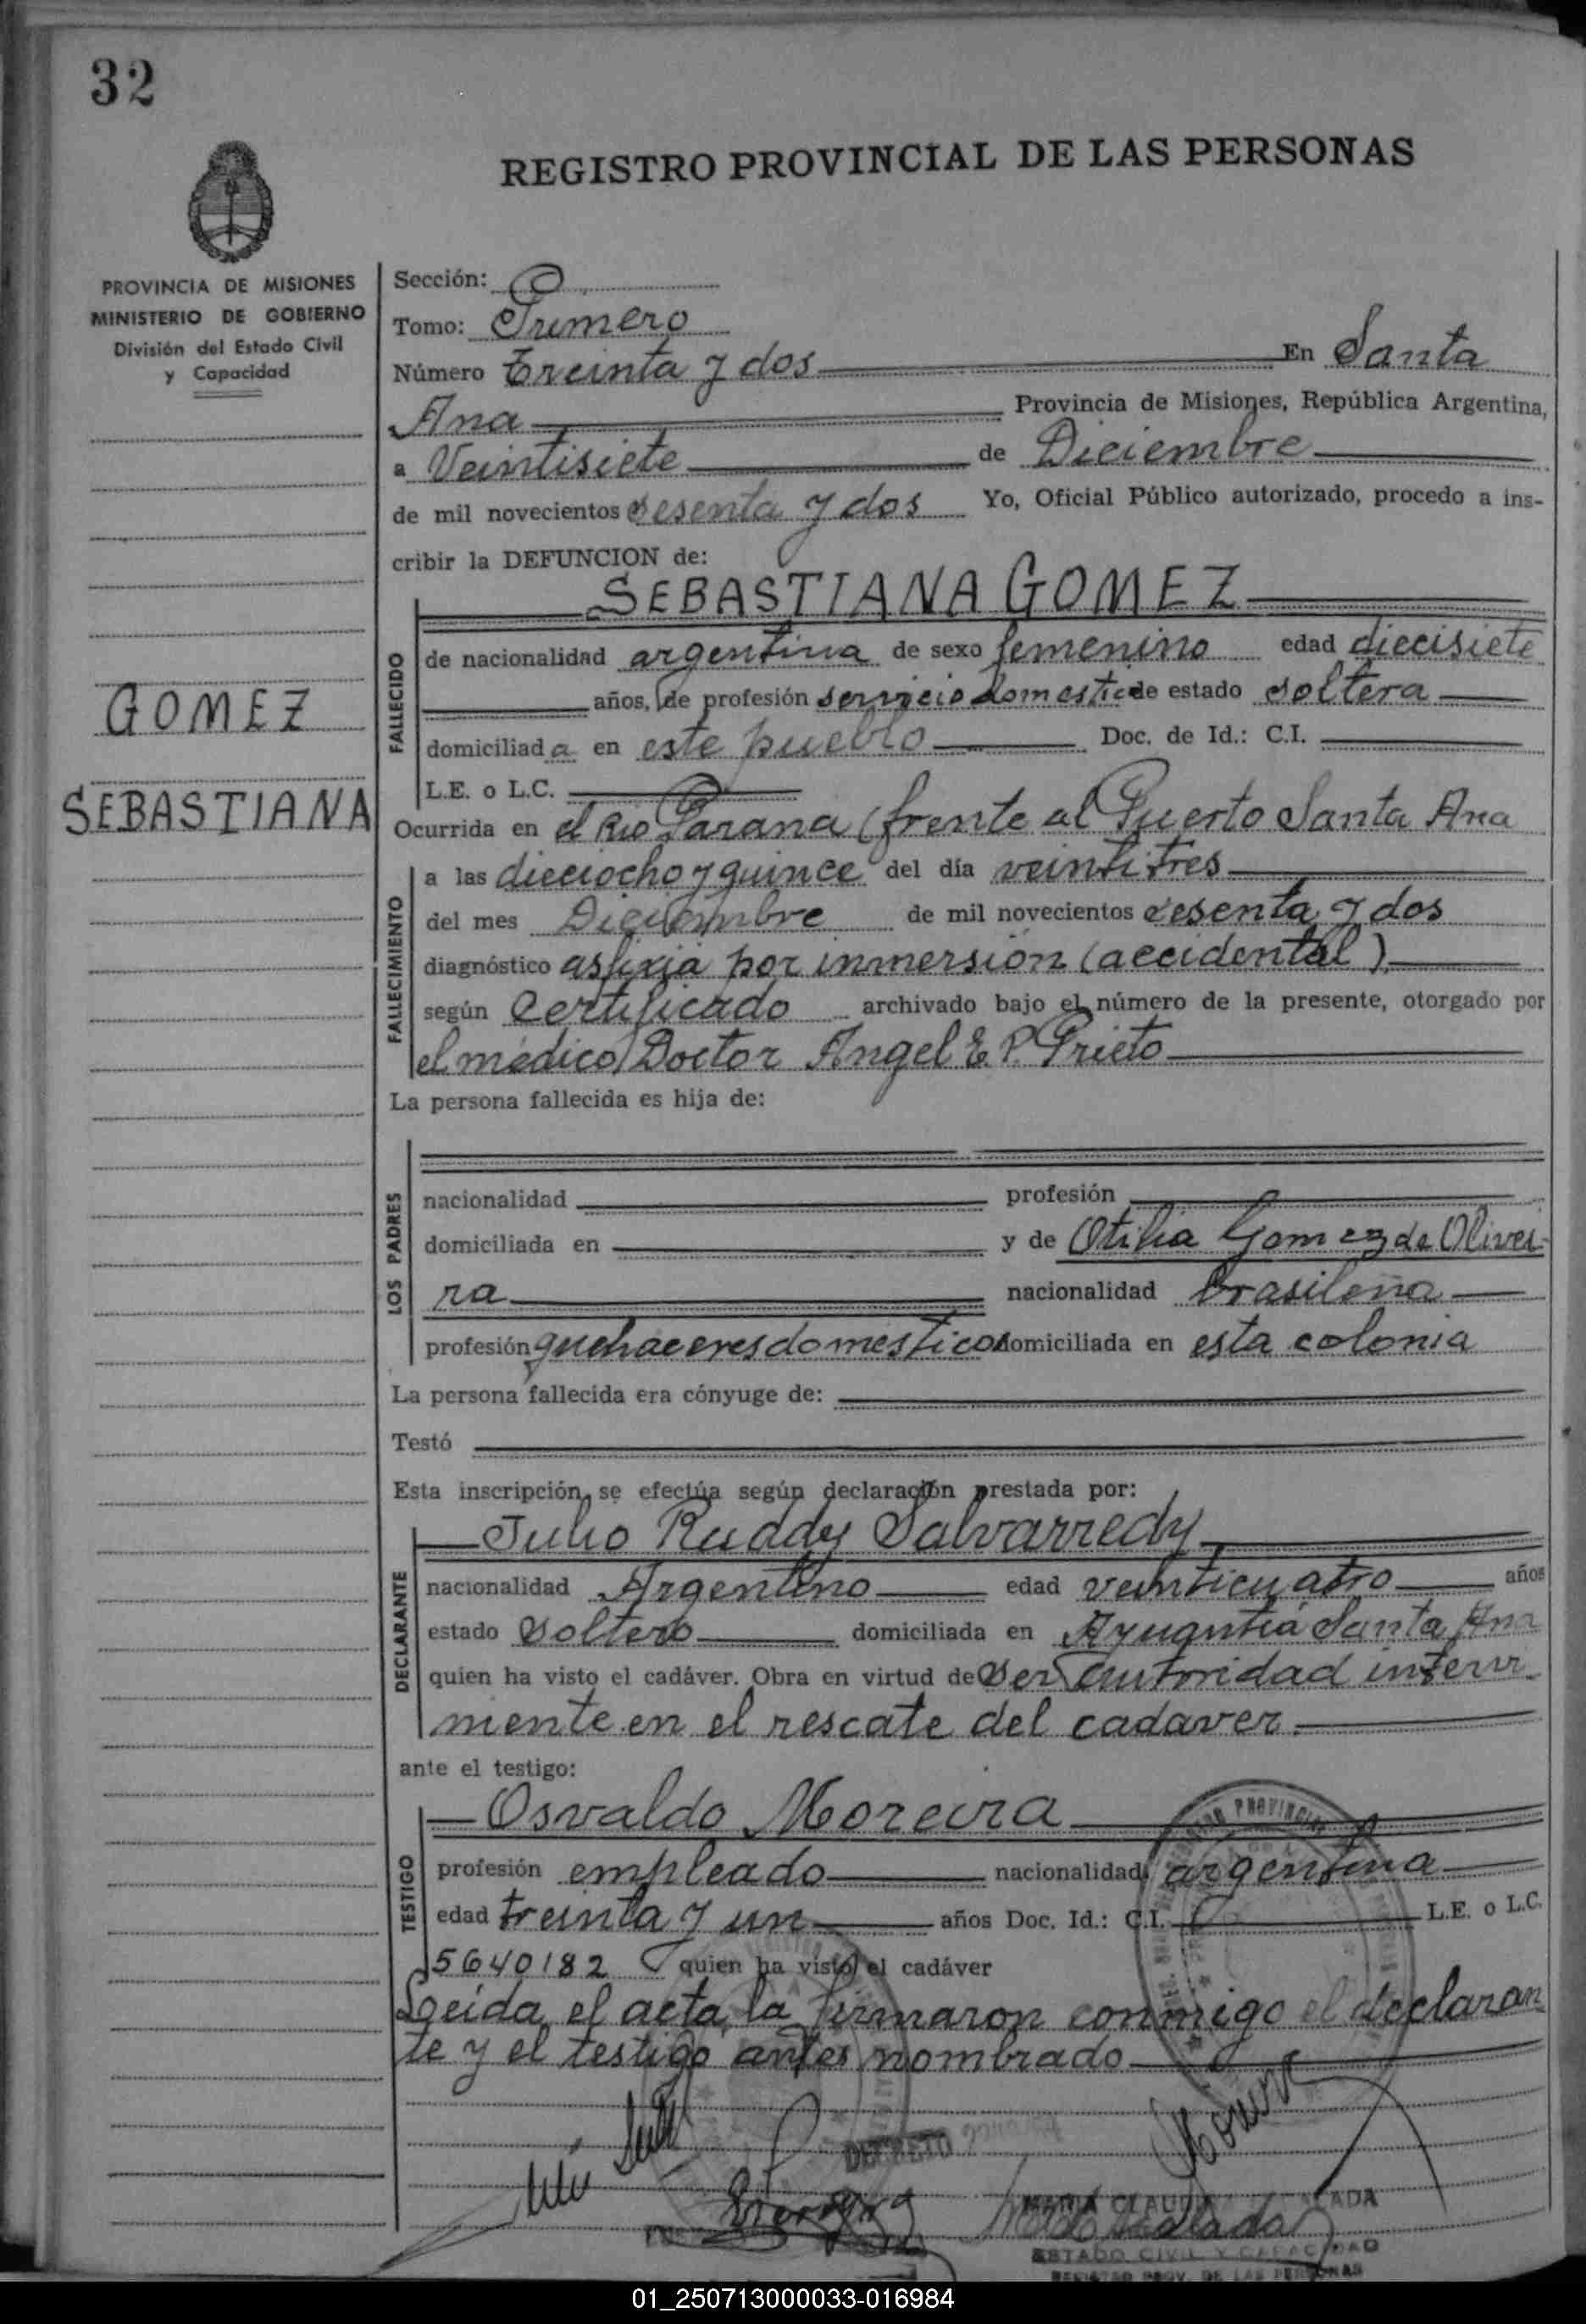 32
REGISTRO PROVINCIAL DE LAS PERSONAS
PROVINCIA DE MISIONES
MINISTERIO DE GOBIERNO
División del Estado Civil
y Capacidad
GOMEZ
SEBASTIANA
Sección:
Tomo: Primero
Número Treinta y dos En Santa
Ana Provincia de Misiones, República Argentina,
a Veintisiete de Diciembre
de mil novecientos sesenta y dos Yo, Oficial Público autorizado, procedo a ins-
cribir la DEFUNCION de:
SEBASTIANA GOMEZ
FALLECIDO
de nacionalidad argentina de sexo femenino edad diecisiete
años, de profesión servicio domestico de estado soltera
domiciliada en este pueblo Doc. de Id.: C.I.
L.E. o L.C.
Ocurrida en el Rio Parana (frente al Puerto Santa Ana
FALLECIMIENTO
a las dieciocho y quince del día veintitres
del mes Diciembre de mil novecientos sesenta y dos
diagnóstico asfixia por inmersión (accidental)
según Certificado archivado bajo el número de la presente, otorgado por
el médico Doctor Angel E. P. Prieto
La persona fallecida es hija de:
LOS PADRES
nacionalidad profesión
domiciliada en y de Otilia Gomez de Olivei-
ra nacionalidad brasileña
profesión quehaceres domesticos domiciliada en esta colonia
La persona fallecida era cónyuge de:
Testó
Esta inscripción se efectúa según declaración prestada por:
Julio Ruddy Salvarredy
DECLARANTE
nacionalidad Argentino edad veinticuatro años
estado soltero domiciliada en Ayugntia Santa Ana
quien ha visto el cadáver. Obra en virtud de ser autoridad intervi-
niente en el rescate del cadaver.
ante el testigo:
Osvaldo Moreira
TESTIGO
profesión empleado nacionalidad argentina
edad treinta y un años Doc. Id.: C.I. L.E. o L.C.
5640182 quien ha visto el cadáver
Leida el acta, la firmaron conmigo el declaran
te y el testigo antes nombrado
DECRETO
MARIA CLAUDIA
ESTADO CIVIL Y CAPACIDAD
REGISTRO PROV. DE LAS PERSONAS
01_250713000033-016984